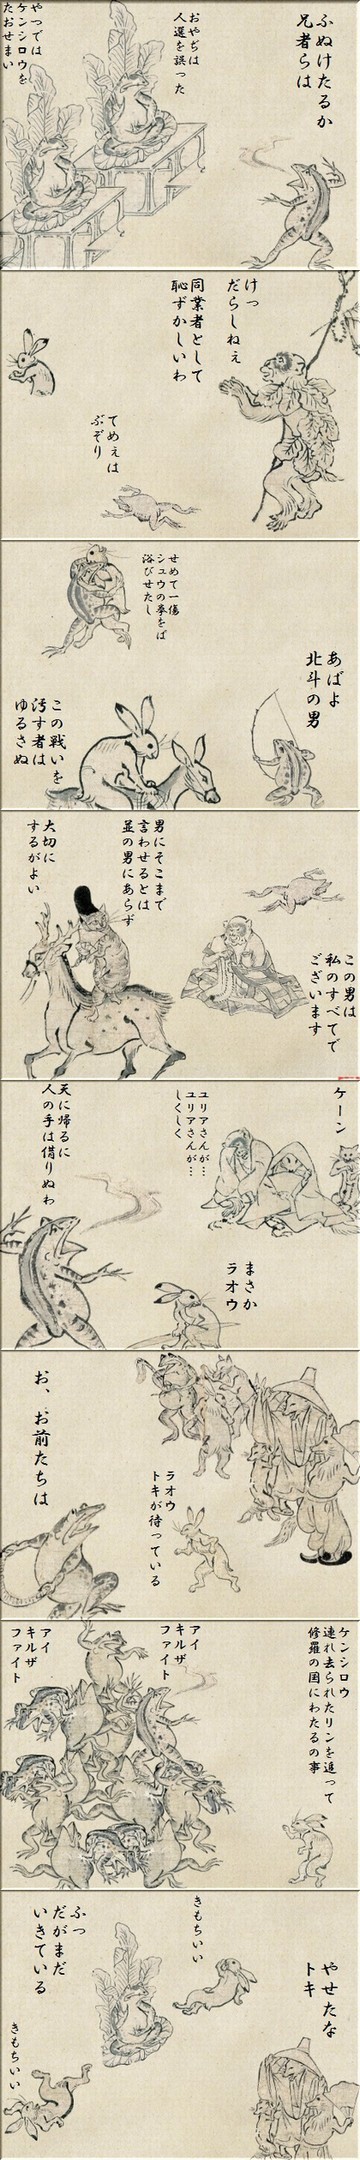 ふぬけたるか
兄者らは
おやぢは
人選を誤った
やつでは
ケンシロウを
たおせまい
けっ
だらしねぇ
同業者として
恥ずかしいわ
てめぇは
ぶぞり
せめて一傷
シュウの拳をば
浴びせたし
あばよ
北斗の男
この戦いを
汚す者は
ゆるさぬ
この男は
私のすべてで
ございます
男にそこまで
言わせるとは
並の男にあらず
大切に
するがよい
ケーン
ユリアさんが…
ユリアさんが…
しくしく
天に帰るに
人の手は借りぬわ
まさか
ラオウ
お、お前たちは
ラオウ
トキが待っている
ケンシロウ
連れ去られたリンを追って
修羅の国にわたるの事
アイ
キルザ
ファイト
アイ
キルザ
ファイト
やせたな
トキ
きもちいい
ふっ
だがまだ
いきている
きもちいい